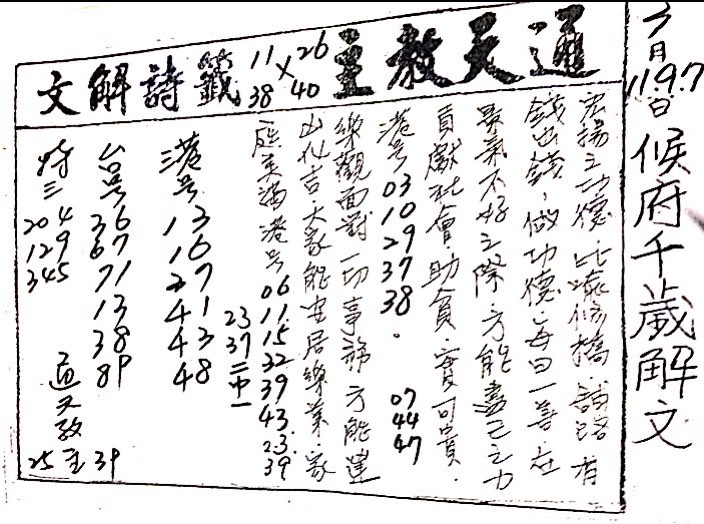 3月11.9.7日 候府千歲解文
通天教主
11 38 × 26 40
籤詩解文
宏揚立功德 比喻修橋 鋪路 有
錢出錢，做功德，每日一善，在
景氣不好之際，方能盡己之力
貢獻社會，助貧，實可貴．
港号 03 10 29 37 38． 07 44 47
樂觀面對一切事務 方能達
出仙吉 大家能安居樂業，家
庭美滿 港号 06 11 15 32 39 43．23．39
23 37 二中一
港号 13 16 27 41 43 48
台号 36 67 71 13 38 89 39
特三 204 129 345
通天教主 25